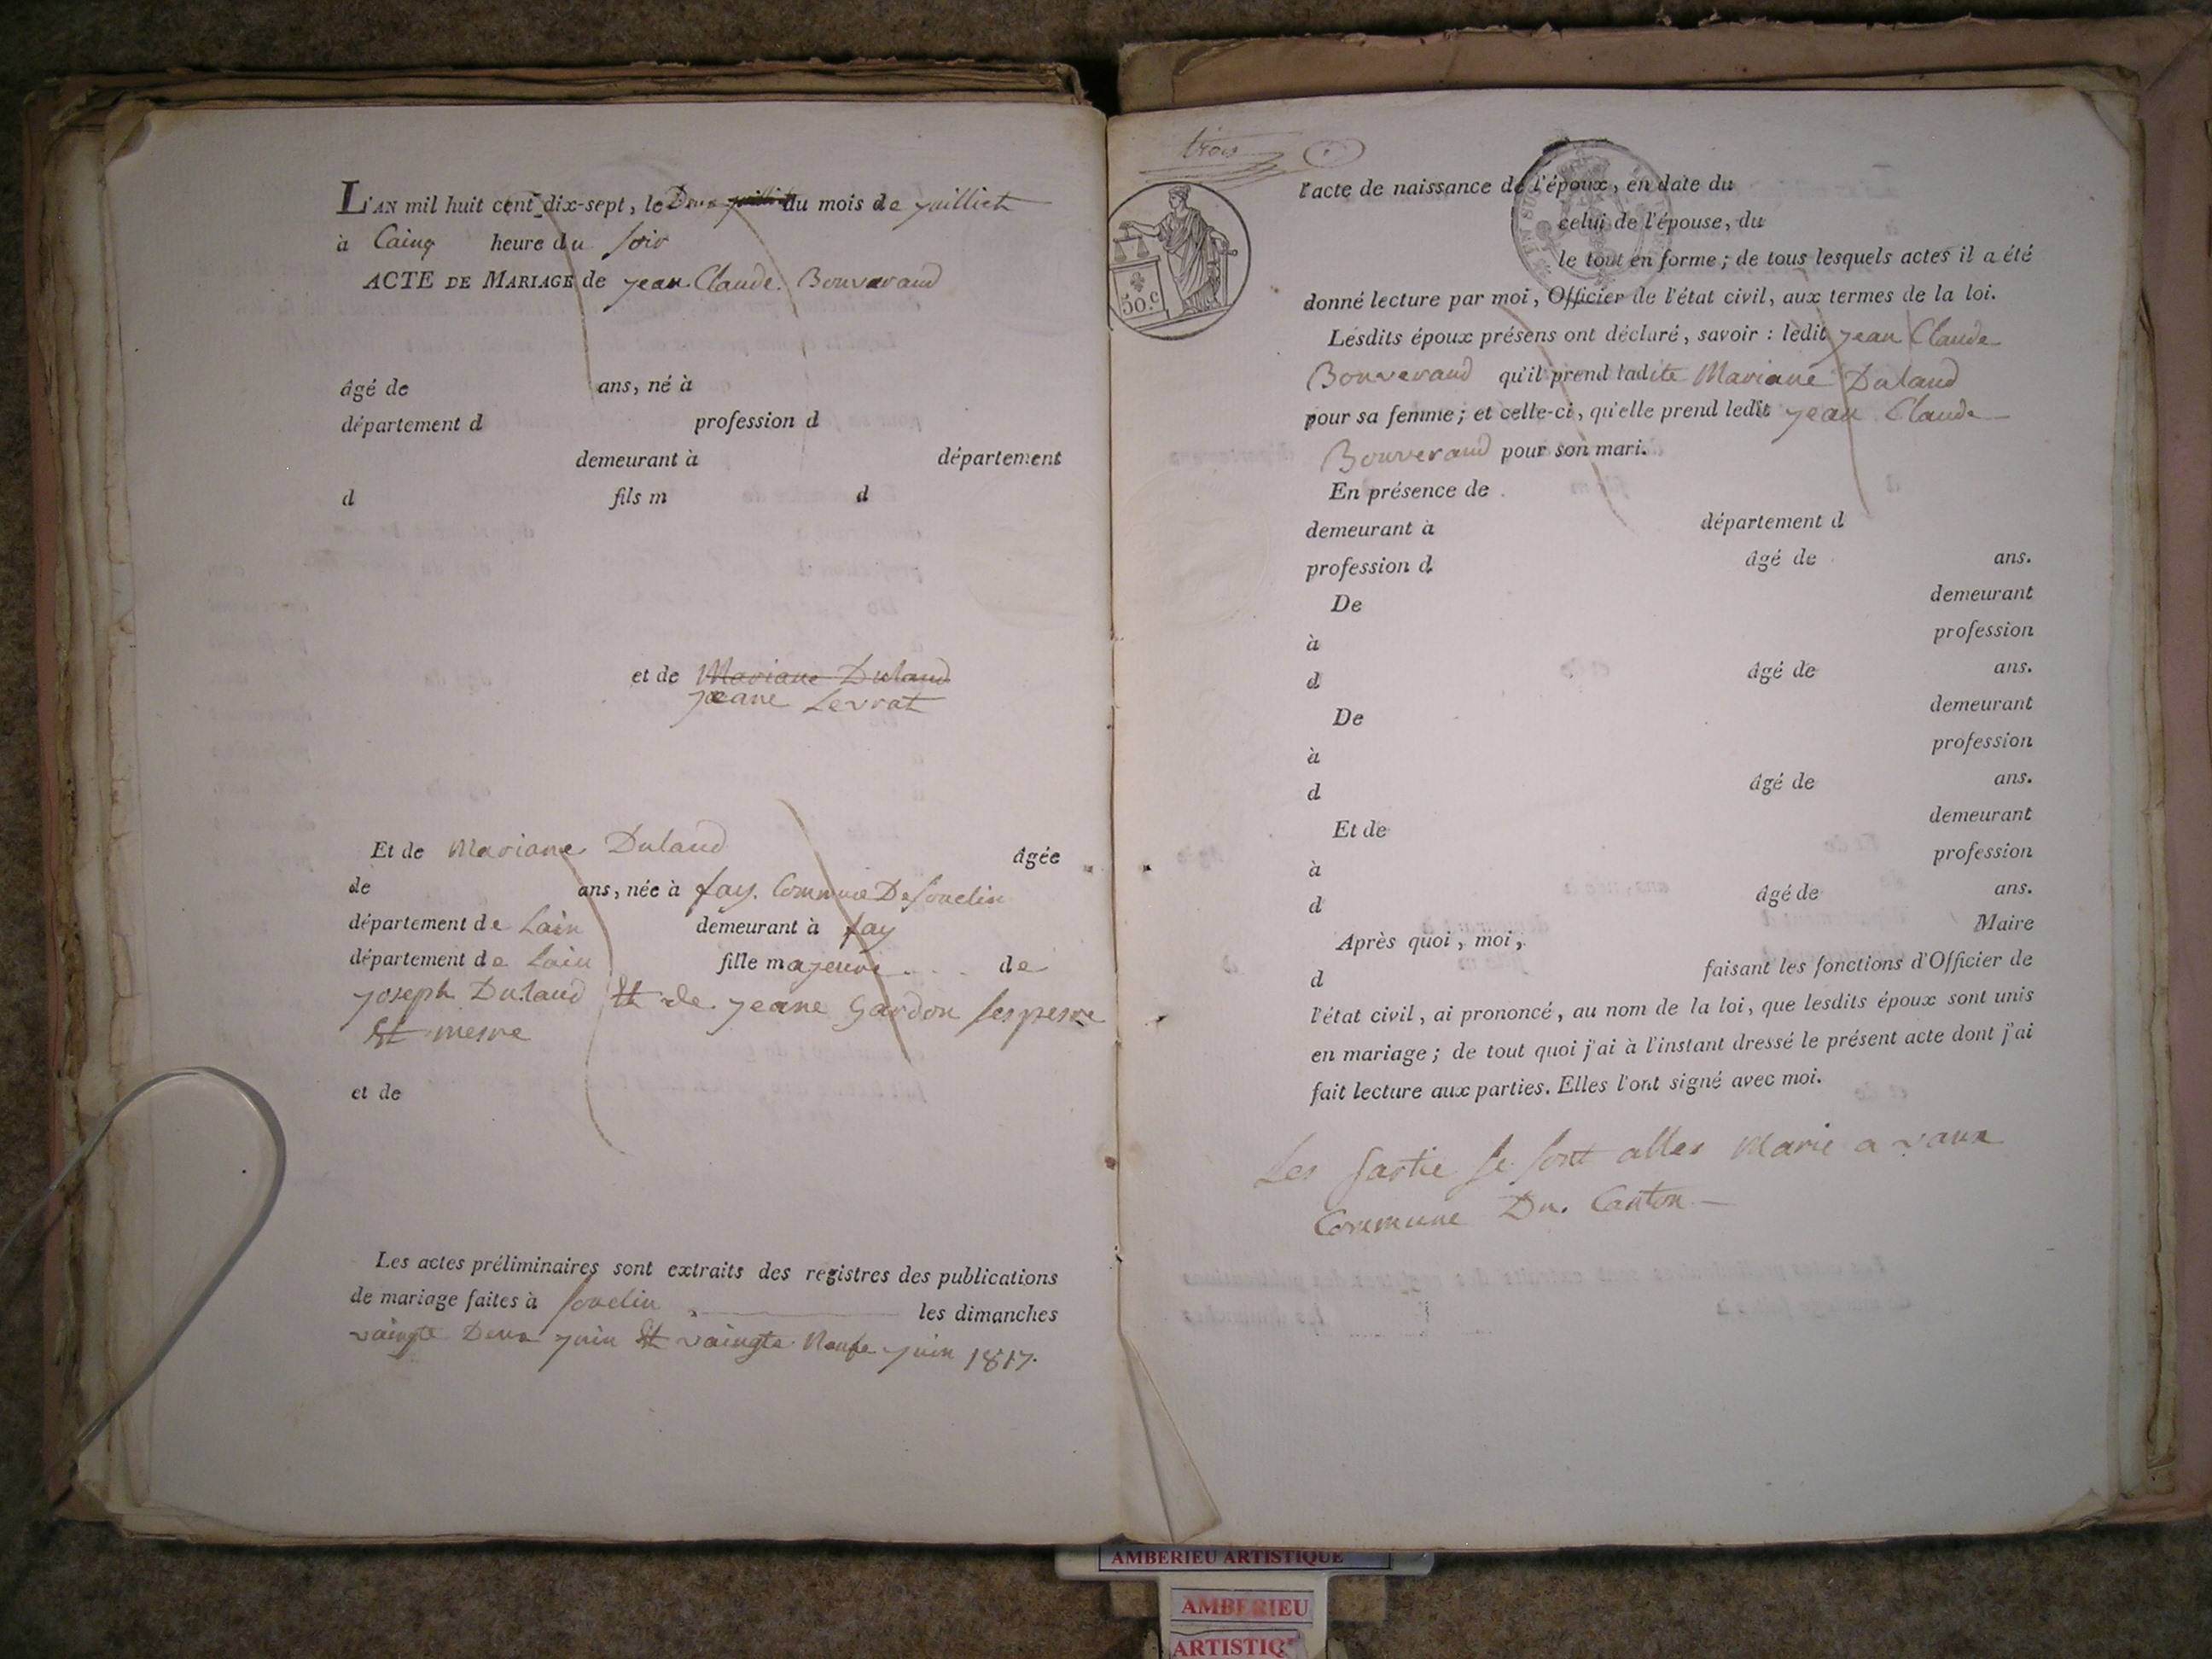 L'AN mil huit cent dix-sept, le Deux du mois de juilliet
à Cainq heure du soir
ACTE DE MARIAGE de jean Claude Bouveraud
âgé de ans, né à
département d profession d
demeurant à département
d fils m d
et de Mariane Dulaud
jeane Levrat
Et de Mariane Dulaud âgée
de ans, née à fay. Commune De Souclin
département de Lain demeurant à fay
département de Lain fille majeure de
joseph Dulaud Et de jeane Gardon ses pesre
Et mesre
et de
Les actes préliminaires sont extraits des registres des publications
de mariage faites à Souclin les dimanches
vaingte Deux juin Et vaingte Neufe juin 1817.
trois
50.c
l'acte de naissance de l'époux, en date du
celui de l'épouse, du
le tout en forme; de tous lesquels actes il a été
donné lecture par moi, Officier de l'état civil, aux termes de la loi.
Lesdits époux présens ont déclaré, savoir : ledit jean Claude
Bouveraud qu'il prend ladite Mariane Dulaud
pour sa femme; et celle-ci, qu'elle prend ledit jean Claude
Bouveraud pour son mari.
En présence de
demeurant à département d
profession d âgé de ans.
De demeurant
à profession
d âgé de ans.
De demeurant
à profession
d âgé de ans.
Et de demeurant
à profession
d âgé de ans.
Après quoi, moi, Maire
d faisant les fonctions d'Officier de
l'état civil, ai prononcé, au nom de la loi, que lesdits époux sont unis
en mariage; de tout quoi j'ai à l'instant dressé le présent acte dont j'ai
fait lecture aux parties. Elles l'ont signé avec moi.
Les partie se sont alles Marie a vaux
Commune Du. Canton
AMBERIEU ARTISTIQUE
AMBERIEU
ARTISTIQ